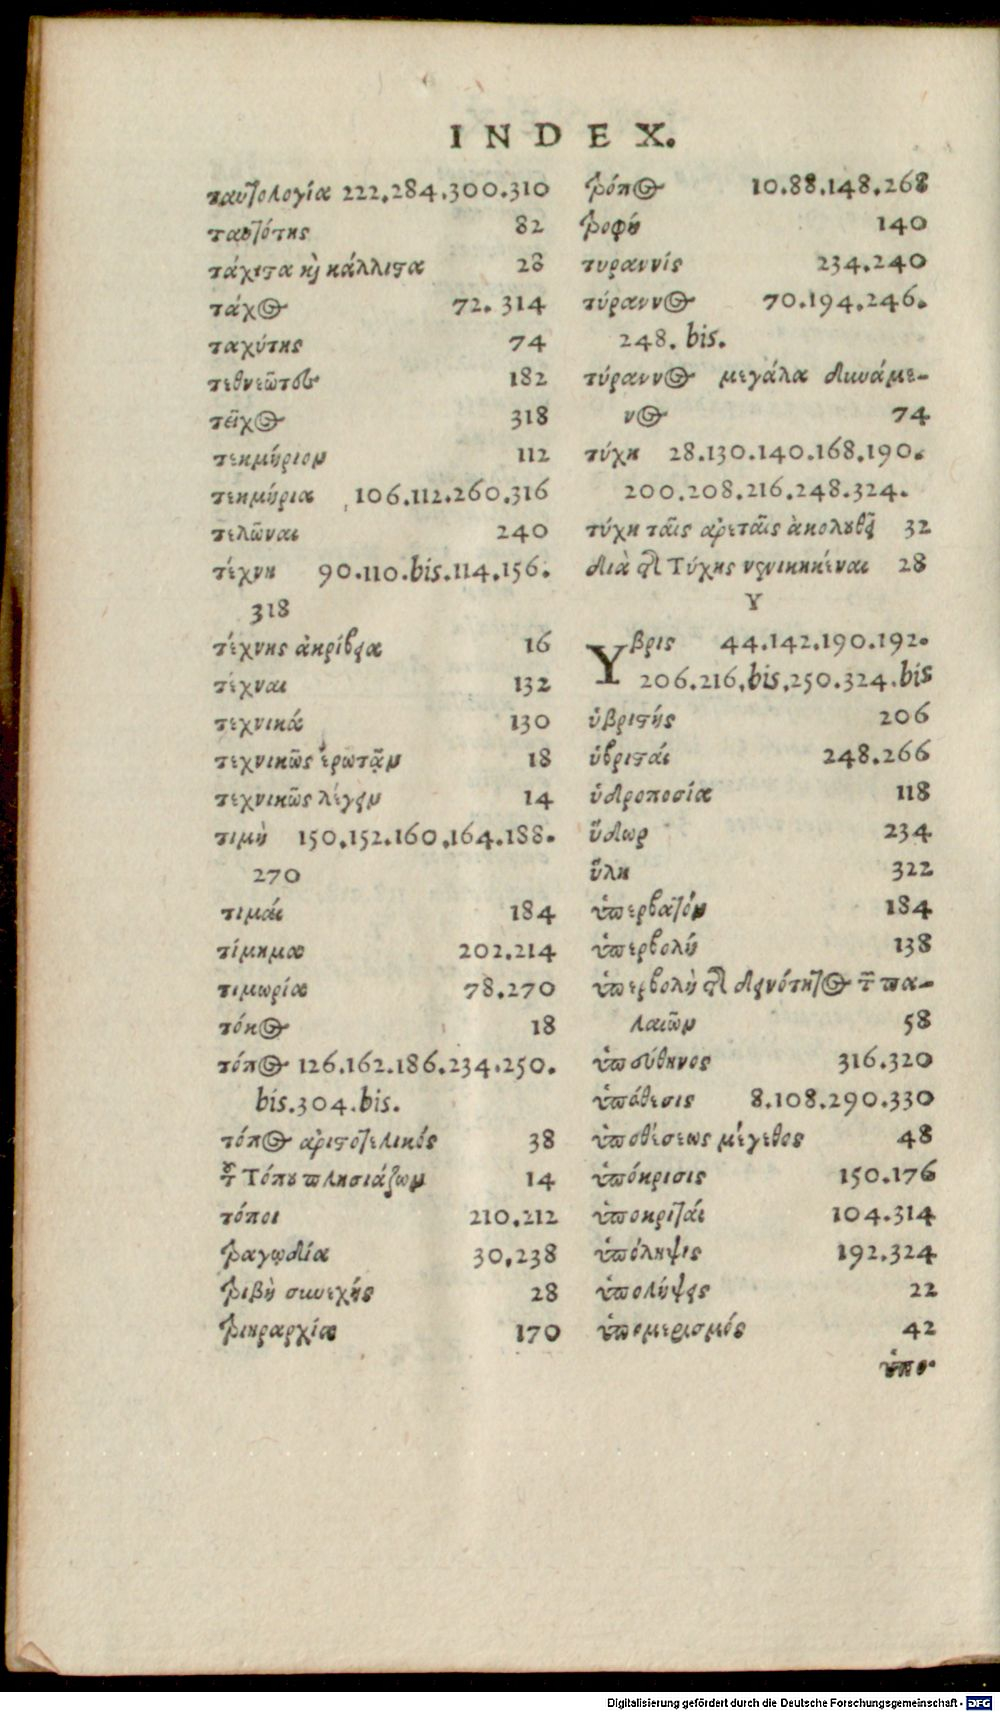 INDEX.
ταυτολογία 222.284.300.310
ταυτότης 82
τάχιϛα κὶ κάλλιϛα 28
τάχος 72.314
ταχύτης 74
τεθνεῶτες 182
τεῖχος 318
τεκμήριον 112
τεκμήρια 106.112.260.316
τελῶναι 240
τέχνη 90.110.bis.114.156.
318
τέχνης ἀκρίβεια 16
τέχναι 132
τεχνικά 130
τεχνικῶς ἐρωτᾷν 18
τεχνικῶς λέγειν 14
τιμὴ 150.152.160.164.188.
270
τιμαί 184
τίμημα 202.214
τιμωρία 78.270
τόκος 18
τόπος 126.162.186.234.250.
bis.304.bis.
τόπος ἀριϛοτελικός 38
τοῦ Τόπου πλησιάζων 14
τόποι 210.212
τραγῳδία 30.238
τριβὴ συνεχής 28
τριηραρχία 170
τρόπος 10.88.148.268
τροφή 140
τυραννίς 234.240
τύραννος 70.194.246.
248. bis.
τύραννος μεγάλα δυνάμε-
νος 74
τύχη 28.130.140.168.190.
200.208.216.248.324.
τύχη ταῖς ἀρεταῖς ἀκολουθεῖ 32
διὰ τῆς Τύχης νενικηκέναι 28
Υ
Υβρις 44.142.190.192.
206.216.bis.250.324.bis
ὑβριϛής 206
ὑβριϛαί 248.266
ὑδροποσία 118
ὕδωρ 234
ὕλη 322
ὑπερβατόν 184
ὑπερβολή 138
ὑπερβολὴ τῆς δεινότητος τῶν πα-
λαιῶν 58
ὑπεύθηνος 316.320
ὑπόθεσις 8.108.290.330
ὑποθέσεως μέγεθος 48
ὑπόκρισις 150.176
ὑποκριταί 104.314
ὑπόληψις 192.324
ὑπολήψεις 22
ὑπομερισμός 42
ὑπο-
Digitalisierung gefördert durch die Deutsche Forschungsgemeinschaft - DFG